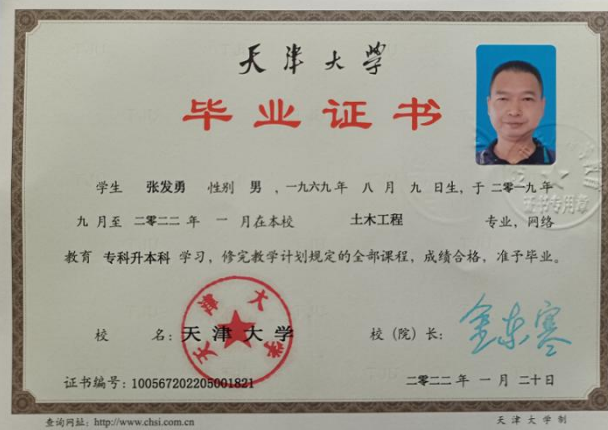 天津大学
毕业证书
学生 张发勇 性别 男 ，一九六九年 八 月 九 日生，于 二零一九年
九 月至 二零二二 年 一 月在本校 土木工程 专业，网络
教育 专科升本科 学习，修完教学计划规定的全部课程，成绩合格，准予毕业。
校 名：天津大学
校（院）长：金东寒
天津大学
证书编号：100567202205001821
二零二二 年 一 月 二十日
查询网址：http://www.chsi.com.cn
天津大学制
证书专用章